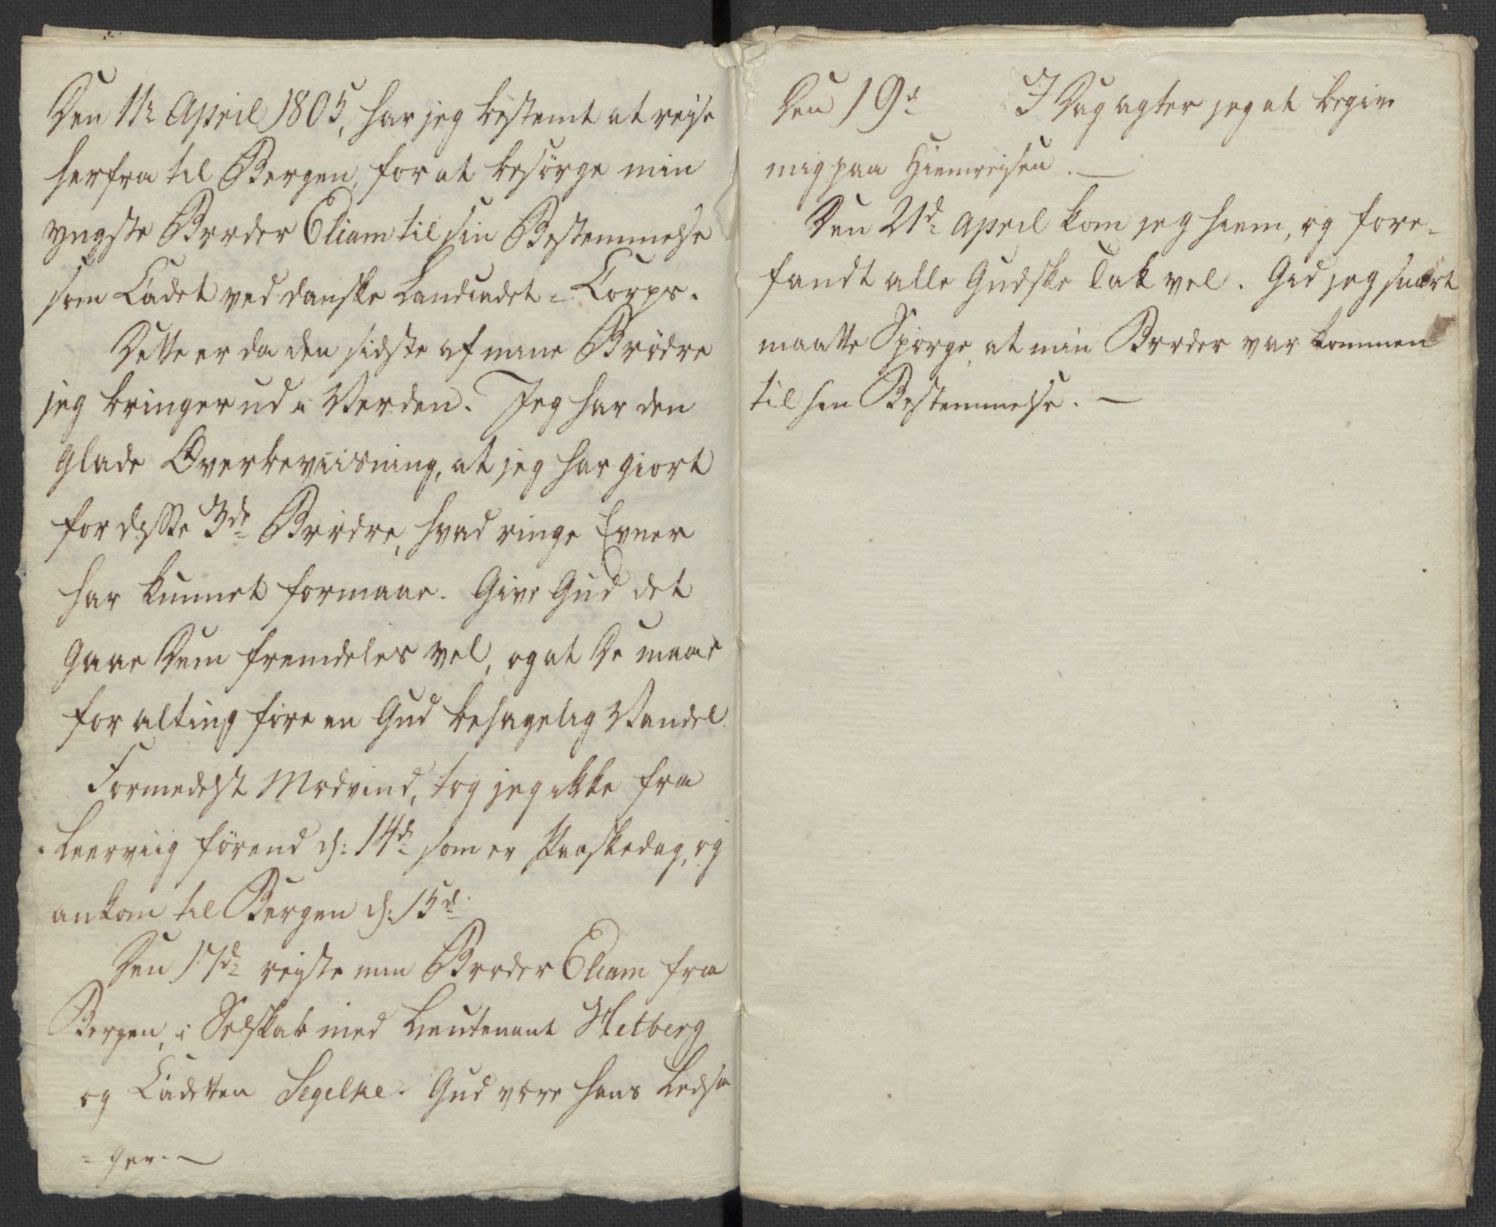 Den 11te April 1805, har jeg bestemt at reise
herfra til Bergen, for at besørge min
yngste Broder Eliam til sin Bestemmelse
som Cadet ved danske Landcadet-Corps.
Dette er da den sidste af mine Brødre
jeg bringer ud i Verden. Jeg har den
glade Overbeviisning, at jeg har giort
for disse 3de Brødre, hvad ringe Evner
har kunnet formaae. Give Gud det
gaae Dem fremdeles vel, og at De maae
for alting føre en Gud behagelig Vandel.
Formedelst Modvind, tog jeg ikke fra
Leerviig førend d: 14de som er Paaskedag, og
ankom til Bergen d: 15de
Den 17de reiste min Broder Eliam fra
Bergen, i Selskab med Lieutenant Hetberg
og Cadetten Segelke. Gud være hans Ledsa
= ger. —
Den 19de I Dag agter jeg at begive
mig paa Hiemreisen. —
Den 21de April kom jeg hiem, og fore-
fandt alle Gudske Tak vel. Gid jeg snart
maatte Spørge at min Broder var kommen
til sin Bestemmelse. —